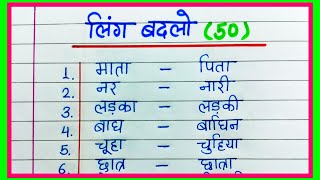 लिंग बदलो (50)
1. माता – पिता
2. नर – नारी
3. लड़का – लड़की
4. बाघ – बाघिन
5. चूहा – चुहिया
6. छात्र – छात्रा